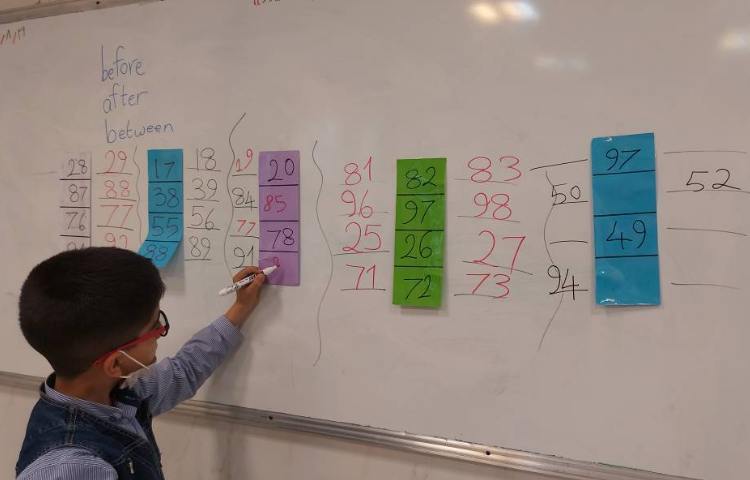 before
after
between
28 29 17 18 19 20 81 82 83 97
87 88 38 39 84 85 96 97 98 50 52
76 77 55 56 77 78 25 26 27 49
88 89 91 71 72 73 94